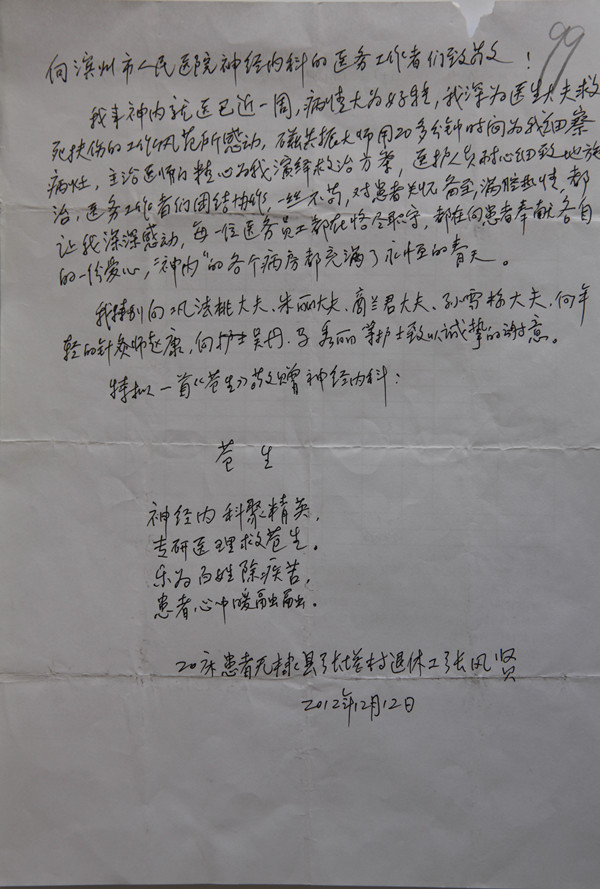 99
向滨州市人民医院神经内科的医务工作者们致敬！
我来神内就医已近一周，病情大为好转，我深为医生大夫救
死扶伤的工作风范所感动，磁共振大师用20多分钟时间为我细察
病灶，主治医师们精心为我演绎救治方案，医护人员耐心细致地施
治，医务工作者们团结协作，一丝不苟，对患者关怀备至，满腔热情，都
让我深深感动，每一位医务员工都在恪尽职守，都在向患者奉献各自
的一份爱心，“神内”的各个病房都充满了永恒的春天。
我特别向巩法桃大夫、朱丽大夫、商兰君大夫、孙雪梅大夫、向年
轻的针灸师赵康，向护士吴丹、秀丽等护士致以诚挚的谢意。
特拟一首《苍生》敬赠神经内科：
苍生
神经内科聚精英，
专研医理救苍生。
乐为百姓除疾苦，
患者心中暖融融。
20床患者无棣县张塔村退休工张风贤
2012年12月12日